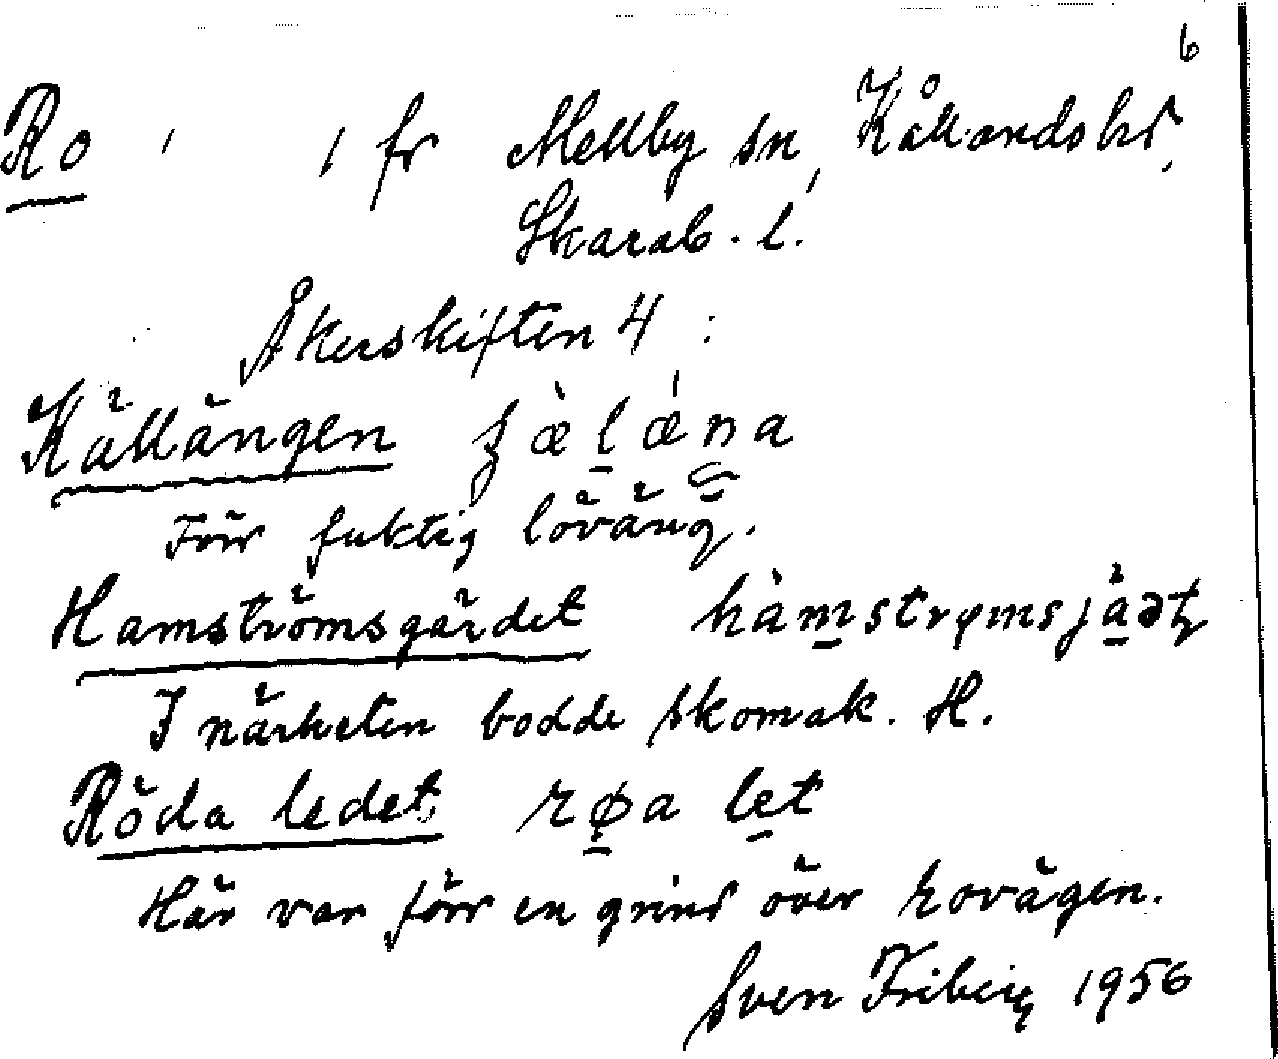 6
Ro 1 1 fr Mellby sn, Kållands hd,
Skarab. l.
Åkerskiften 4 :
Källängen
Förr fuktig löväng.
Hamströmsgärdet
I närheten bodde skomak. H.
Röda ledet røa let
Här var förr en grind över kovägen.
Sven Friberg 1956